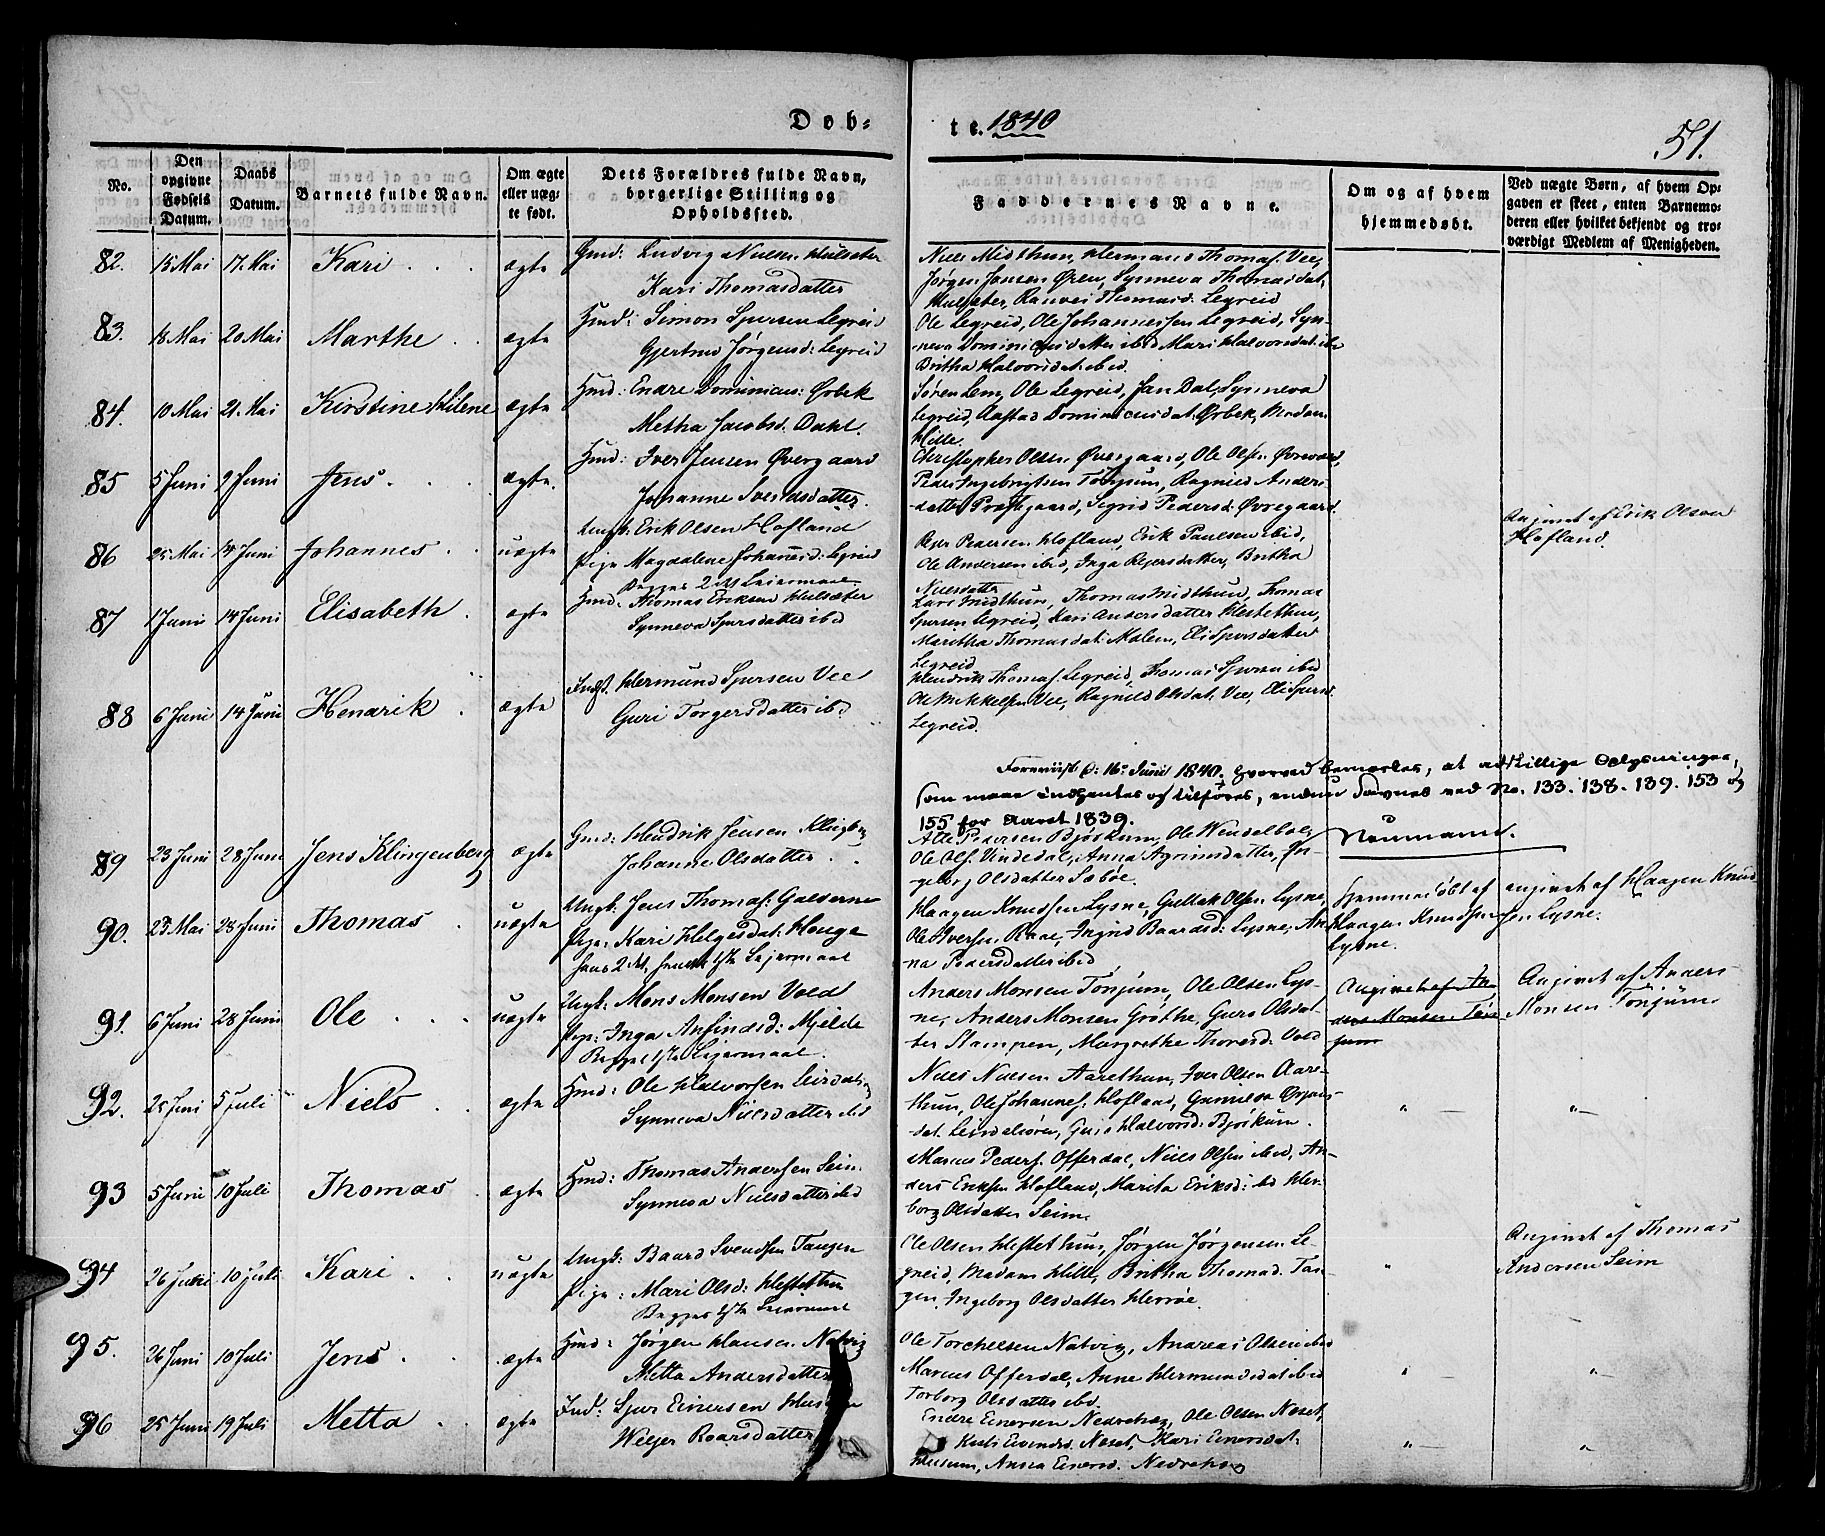 Døb-
te. 1840
51.
No.
Den opgivne Fødsels Datum.
Daabs Datum.
Barnets fulde Navn.
Om ægte eller uægte født.
Dets Forældres fulde Navn, borgerlige Stilling og Opholdssted.
Faddernes Navne.
Om og af hvem hjemmedøbt.
Ved uægte Børn, af hvem Opgaven er skeet, enten Barnemoderen eller hvilket bekjendt og troværdigt Medlem af Menigheden.
82. 15 Mai 17. Mai Kari ægte Gmd: Ludvig Nielsen Hulsæter
Kari Thomasdatter
Niels Midthun, Hermund Thomas: Vee,
Jørgen Jensen Øren, Synneva Thomasdat.
Hulsæter, Ranvei Thomasd: Legreid
83. 18 Mai 20 Mai Marthe ægte Hmd: Simon Spersen Legreid
Gjertrud Jørgensd: Legreid
Ole Legreid, Ole Johannessen Legreid, Syn-
neva Dominicusdatter ibid Mari Halvorsdat. ibd
Britha Halvorsdat. ibid.
84. 10 Mai 21. Mai Kirstine Hilene ægte Hmd: Endre Dominicus: Ørbek
Metha Jacobsd. Dahl.
Søren Lem, Ole Legreid, Jan Dal, Synneva
Legreid, Aastad Dominicusdat. Ørbek, Madam
Hille.
85 5 Juni 9 Juni Jens ægte. Hmd: Iver Jensen Øvregaard
Johanne Svendsdatter.
Christopher Olsen Øvregaard, Ole Olsen Øvregaard,
Peder Ingebrigtsen Tønjum, Ragnild Anders-
datter Præstgaard, Sigrid Pedersd: Øvregaard
86 25 Mai 14 Juni Johannes uægte Ungk: Erik Olsen Hofland
Pige Magdalene Johannesd: Legreid
Begges 2det Leiermaal.
Peder Pedersen Hofland, Erik Paulsen ibid,
Ole Andersen ibid, Inga Reiersdatter, Britha
Nielsdatter
Angivet af Erik Olsen
Hofland.
87 1 Juni 14 Juni Elisabeth ægte Hmd: Thomas Eriksen Hulsæter
Synneva Spersdatter ibd
Lars Midthun, Thomas Midthun, Thomas
Spersen Legreid, Kari Andersdatter Hestethun,
Maritha Thomasdat: Molem, Eli Spersdatter
Legreid
88 6 Juni 14 Juni Hendrik ægte Indst. Hermund Spersen Vee
Guri Torgersdatter ibd
Hendrik Thomas: Legreid, Thomas Spersen ibid
Ole Mikkelsen Vee, Ragnild Olsdat. Vee, Eli Spersd.
Legreid.
Foreviist d: 16de Juni 1840. hvorved bemærkes, at adskillige Oplysninger,
som maae indhentes og tilføres, endnu savnes ved No. 133. 138. 139. 153 og
155 for Aaret 1839.
Neumann.
89 23 Juni 28 Juni Jens Klingenberg ægte Gmd: Hendrik Jensen Klingbg
Johanne Olsdatter
Atle Pedersen Bjørkum, Ole Wendelboe,
Ole Ols. Vindedal, Anna Agrimsdatter, In-
geborg Olsdatter Sæbøe.
90. 23 Mai 28 Juni Thomas uægte Ungk: Jens Thomas: Galderne
Pige: Kari Helgesdat: Hauge
hans 2det, hendes 1ste Leiermaal
Haagen Knudsen Lysne, Gullak Olsen Lysne,
Ole Iversen Raae, Ingrid Baardsd: Lysne, An-
na Pedersdatter ibid
Hjemmedøbt af
Haagen Knudsen
Lysne.
angivet af Haagen Knud-
sen Lysne.
91. 6 Juni 28 Juni Ole uægte Ungk: Mons Monsen Vold
Pige: Inga Anfindsd: Mjelde
Begges 1ste Leiermaal.
Anders Monsen Tønjum, Ole Olsen Lys-
ne, Anders Monsen Grøthe, Guro Olsdat-
ter Stampen, Margrethe Thoresd: Vold
Angivet af An-
ders Monsen Tøn-
jum
Angivet af Anders
Monsen Tønjum
92. 25 Juni 5 Juli Niels ægte Hmd: Ole Halvorsen Leirdal
Synneva Nielsdatter ibd
Niels Nielsen Aarethun, Iver Olsen Aare-
thun, Ole Johannes: Hofland, Gunnild
dat. Leirdalsøren, Guri Halvorsd: Bjørkum.
" — " —
93 5 Juni 10 Juli Thomas ægte Hmd: Thomas Andersen Seim
Synneva Nielsdatter ibid
Marcus Peders. Offerdal, Niels Olsen ibid, An-
ders Eriksen Hofland, Marita Eriksd: ibd
borg Olsdatter Seim
94 26 Juni 10 Juli Kari uægte Ungk: Baard Svendsen Tangen
Pige: Mari Olsd: Hestethun
Begges 1ste Leiermaal
Ole Olsen Hestethun, Jørgen Jørgensen Le-
greid, Madam Hille, Britha Thomasd. Tan-
gen, Ingeborg Olsdatter Herrøe.
"
Angivet af Thomas
Andersen Seim
95. 26 Juni 10 Juli Jens ægte Hmd: Jørgen Hansen Natvig
Metta Andersdatter
Ole Torchelsen Natvig, Andreas Olsen ibid
Marcus Offerdal, Anne Hermundsdat ibid
Torborg Olsdatter ibd.
" — "
96 25 Juni 19 Juli Metta ægte Ind: Sjur Einersen
Weljer Baarsdatter
Endre Einersen Nedrehag, Ole Olsen Næset,
Næset, Kari Einersdat.
Husum, Anna Einersd. Nedrehag
" — "